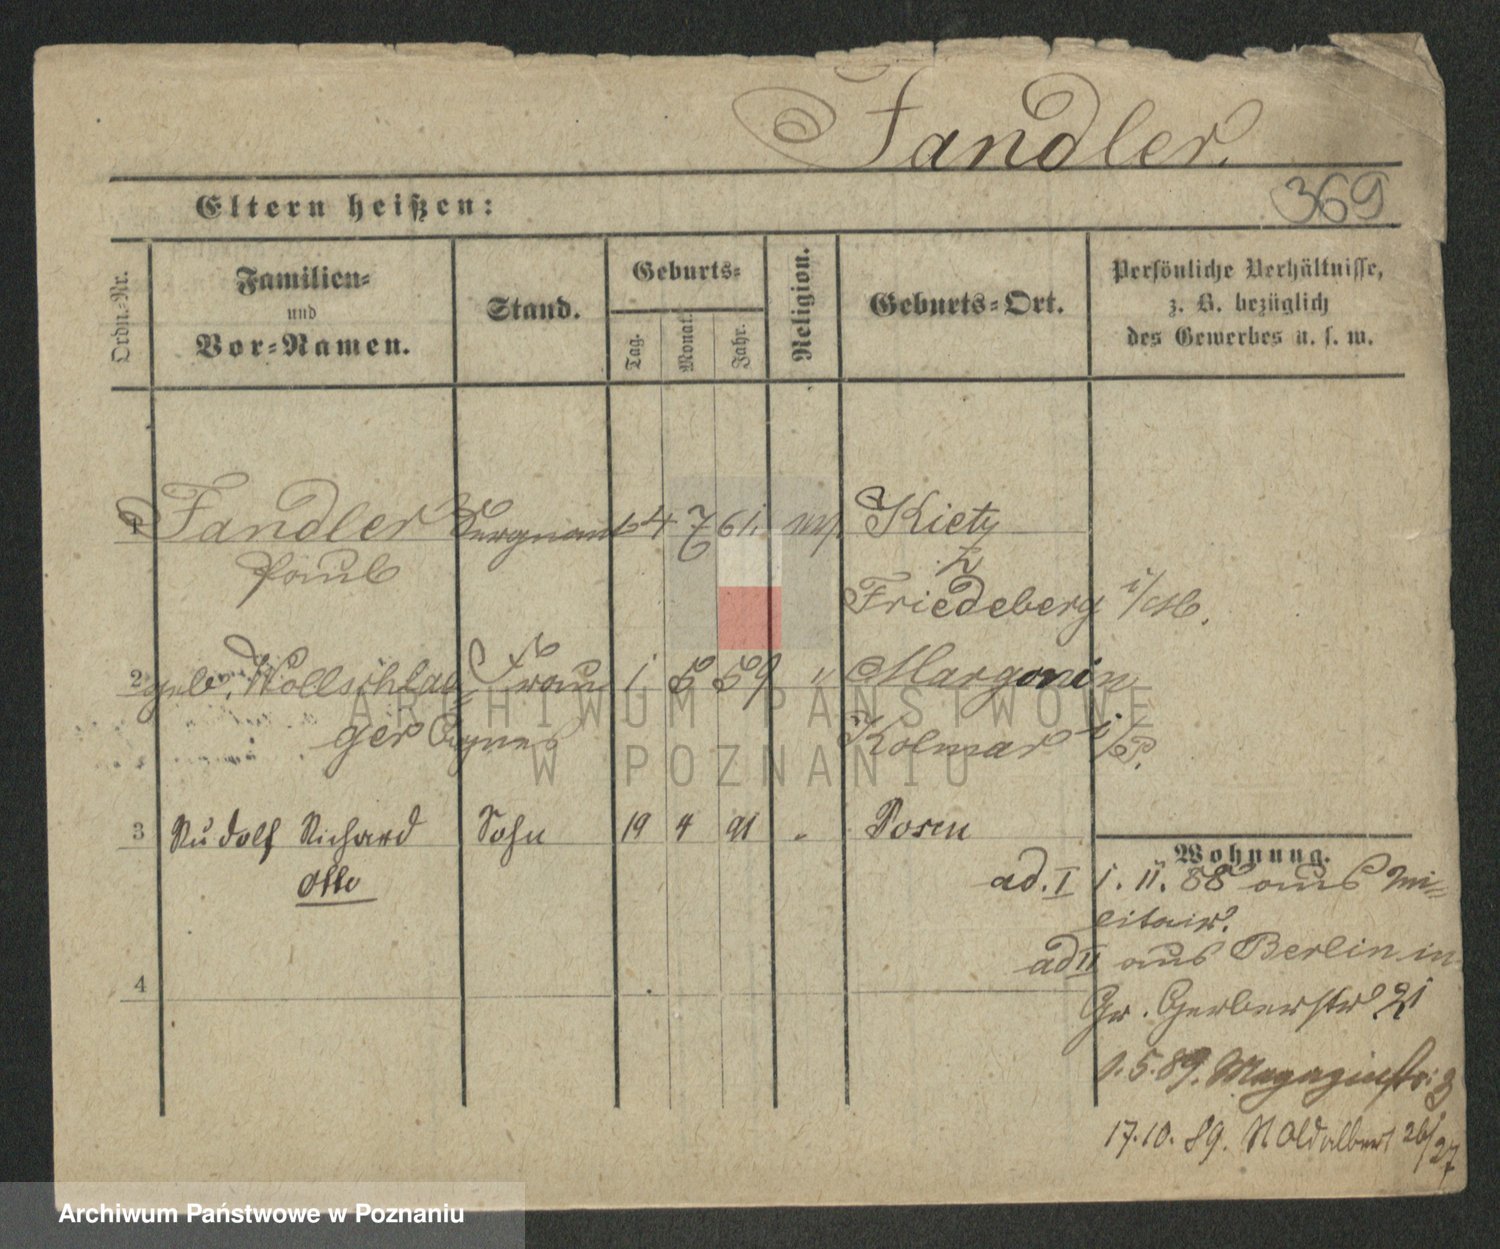 Fandler.
369
Eltern heißen:
Ordn.-Nr.
Familien-
und
Vor-Namen.
Stand.
Geburts-
Tag.
Monat.
Jahr.
Religion.
Geburts-Ort.
Persönliche Verhältnisse,
z. B. bezüglich
des Gewerbes u. s. w.
1 Fandler Sergeant 4 7 61. Kietz
Paul
Friedeberg i/
2 geb. Wollschlae Frau 1 5 59 " Margonin
ger Agnes Kolmar i/P.
3 Rudolf Richard Sohn 19 4 91 " Posen
Otto
Wohnung.
ad. I 1. 11. 88 aus Mi=
litair.
ad II aus Berlin in
Gr. Gerberstr 21
1. 5. 89. Magazinstr. 3
17. 10. 89. St Adalbert 26/27
4
ARCHIWUM PAŃSTWOWE
W POZNANIU
Archiwum Państwowe w Poznaniu